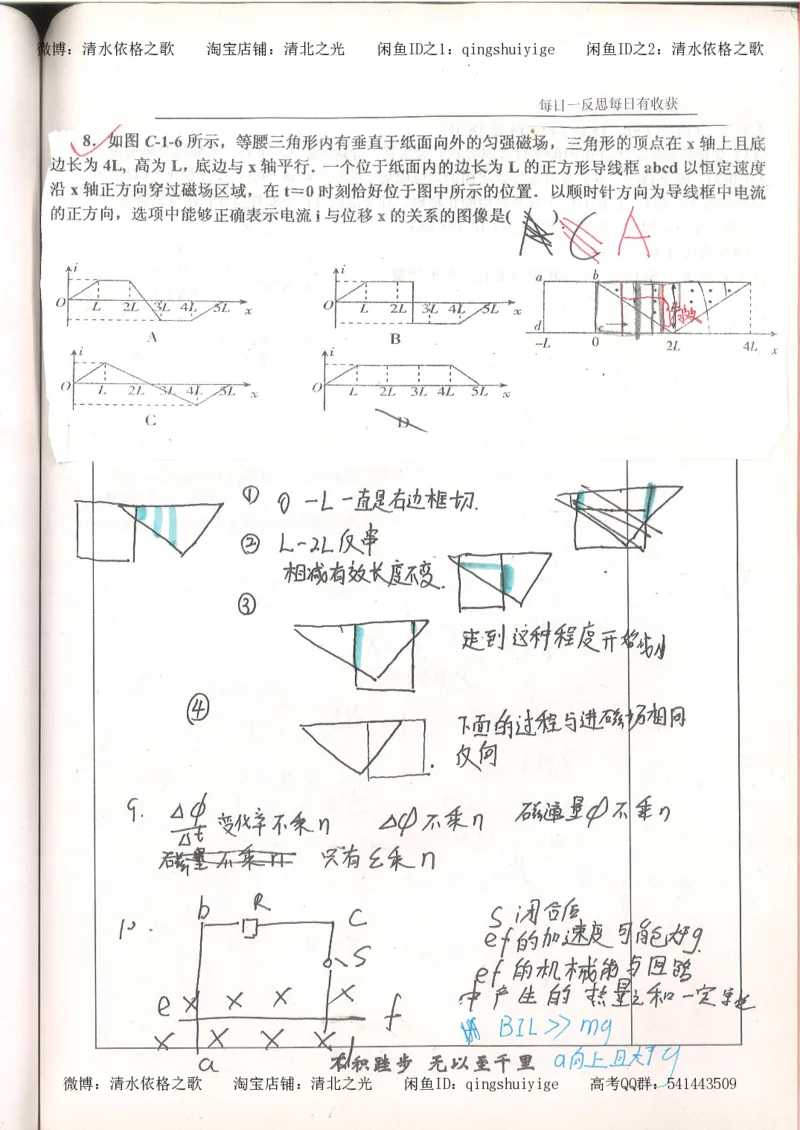 微博：清水依格之歌 淘宝店铺：清北之光 闲鱼ID之1：qingshuiyige 闲鱼ID之2：清水依格之歌
每日一反思每日有收获
8．如图 C-1-6 所示，等腰三角形内有垂直于纸面向外的匀强磁场，三角形的顶点在 x 轴上且底
边长为 4L, 高为 L，底边与 x 轴平行．一个位于纸面内的边长为 L 的正方形导线框 abcd 以恒定速度
沿 x 轴正方向穿过磁场区域，在 t＝0 时刻恰好位于图中所示的位置．以顺时针方向为导线框中电流
的正方向，选项中能够正确表示电流 i 与位移 x 的关系的图像是( )
A
i
O L 2L 3L 4L 5L x
A
i
O L 2L 3L 4L 5L x
B
a b
d c
-L 0 2L 4L x
i
O L 2L 3L 4L 5L x
C
i
O L 2L 3L 4L 5L x
D
① 0 —L 一直是右边框切.
② L-2L 反串
相减有效长度不变.
③
走到这种程度开始切
④
下面的过程与进磁场相同
反向
9. Δφ/Δt 变化率不乘n Δφ不乘n 磁通量φ不乘n
磁通量不乘n 只有ε乘n
10.
b R c
S
e × × × × f
× × × ×
a
S闭合后
ef的加速度可能大于g.
ef的机械能与回路
中产生的热量之和一定守恒
BIL>>mg
a向上且大于g
不积跬步 无以至千里
微博：清水依格之歌 淘宝店铺：清北之光 闲鱼ID：qingshuiyige 高考QQ群：541443509